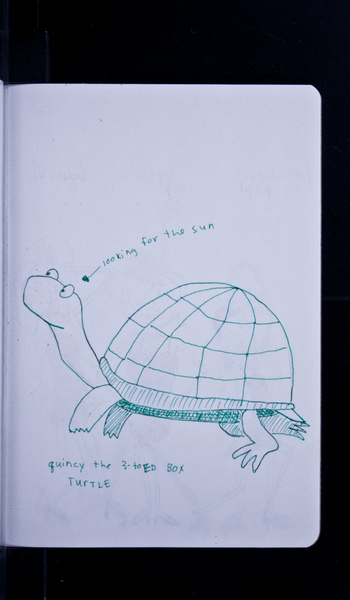 looking for the sun
quincy the 3-toED BOX
TURTLE